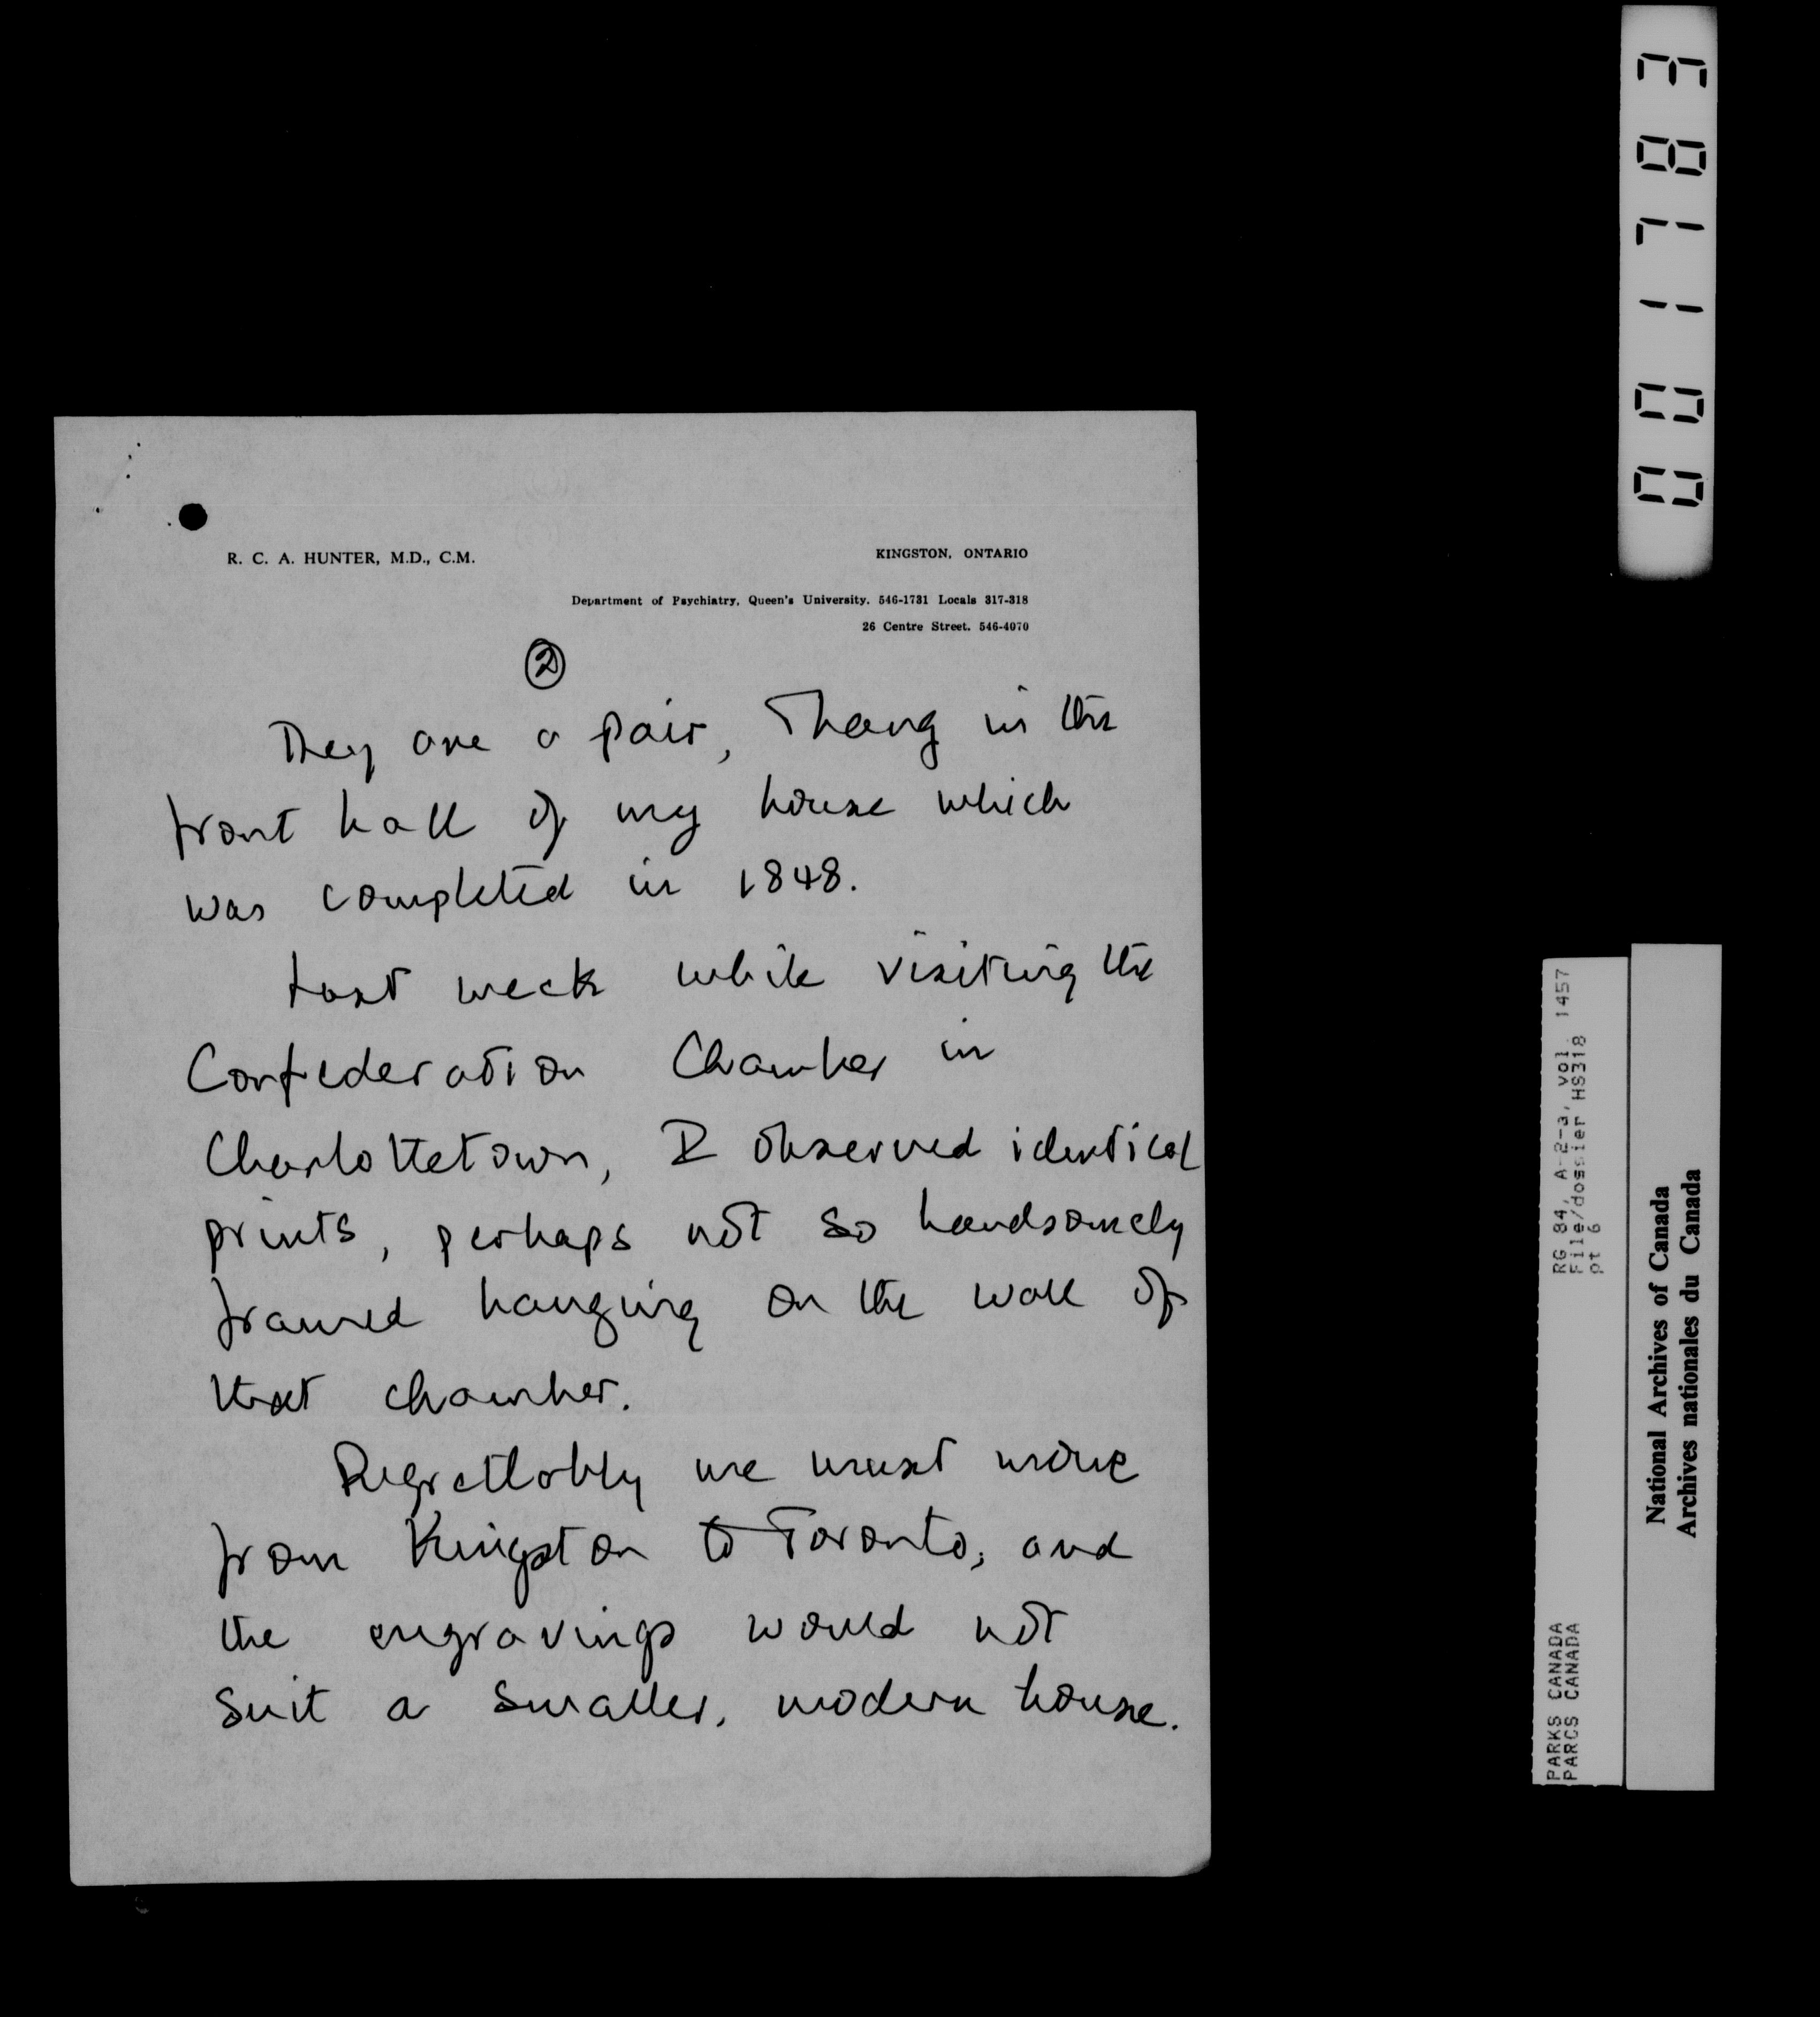 R. C. A. HUNTER, M.D., C.M.
KINGSTON, ONTARIO
Department of Psychiatry, Queen's University. 546-1731 Locals 317-318
26 Centre Street. 546-4070
2
They are a pair, I hang in the
front hall of my house which
was completed in 1848.
Last week while visiting the
Confederation Chamber in
Charlottetown, I observed identical
prints, perhaps not so handsomely
framed hanging on the wall of
that chamber.
Regrettably we must move
from Kingston to Toronto, and
the engravings would not
suit a smaller, modern house.
001783
RG 84, A-2-a, vol. 1457
File/dossier HS318
pt 6
PARKS CANADA
PARCS CANADA
National Archives of Canada
Archives nationales du Canada